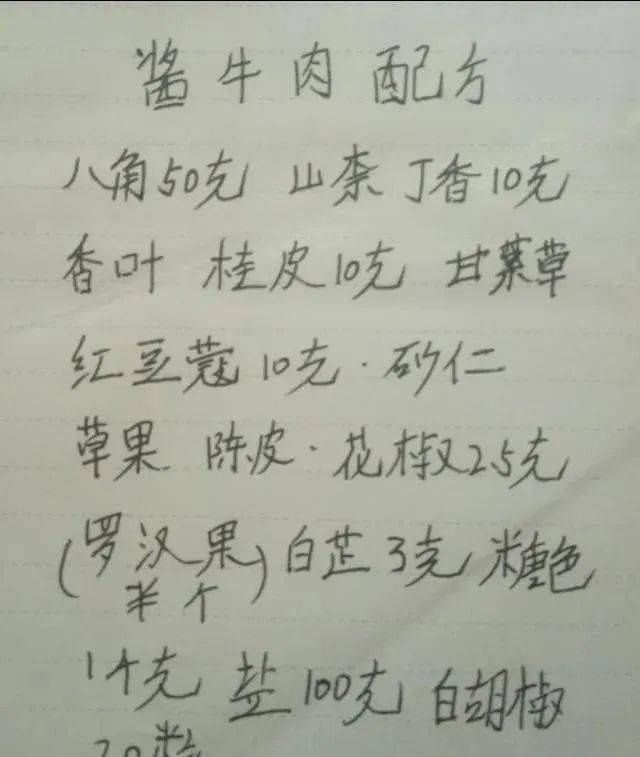 酱牛肉配方
八角50克 山柰 丁香10克
香叶 桂皮10克 甘草
红豆蔻10克·砂仁
草果 陈皮·花椒25克
(罗汉果半个) 白芷3克 糖色
14克 盐100克 白胡椒
20粒